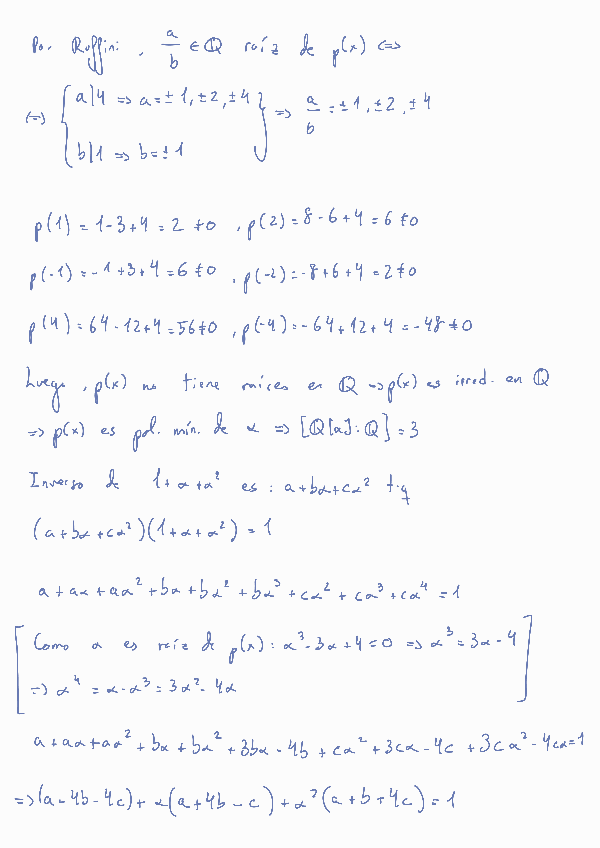 Por Ruffini, a/b ∈ ℚ raíz de p(x) ⇔
⇔ { a|4 ⇒ a = ±1, ±2, ±4
b|1 ⇒ b = ±1 } ⇒ a/b = ±1, ±2, ±4
p(1) = 1-3+4 = 2 ≠0, p(2) = 8-6+4 = 6 ≠0
p(-1) = -1+3+4 = 6 ≠0, p(-2) = -8+6+4 = 2 ≠0
p(4) = 64-12+4 = 56 ≠0, p(-4) = -64+12+4 = -48 ≠0
Luego, p(x) no tiene raíces en ℚ ⇒ p(x) es irred. en ℚ
⇒ p(x) es pol. mín. de α ⇒ [ℚ[α]:ℚ] = 3
Inverso de 1+α+α² es: a+bα+cα² t.q
(a+bα+cα²)(1+α+α²) = 1
a + aα + aα² + bα + bα² + bα³ + cα² + cα³ + cα⁴ = 1
[ Como α es raíz de p(x): α³-3α+4=0 ⇒ α³ = 3α-4
⇒ α⁴ = α·α³ = 3α²-4α ]
a + aα + aα² + bα + bα² + 3bα - 4b + cα² + 3cα - 4c + 3cα² - 4cα = 1
⇒ (a-4b-4c) + α(a+4b-c) + α²(a+b+4c) = 1